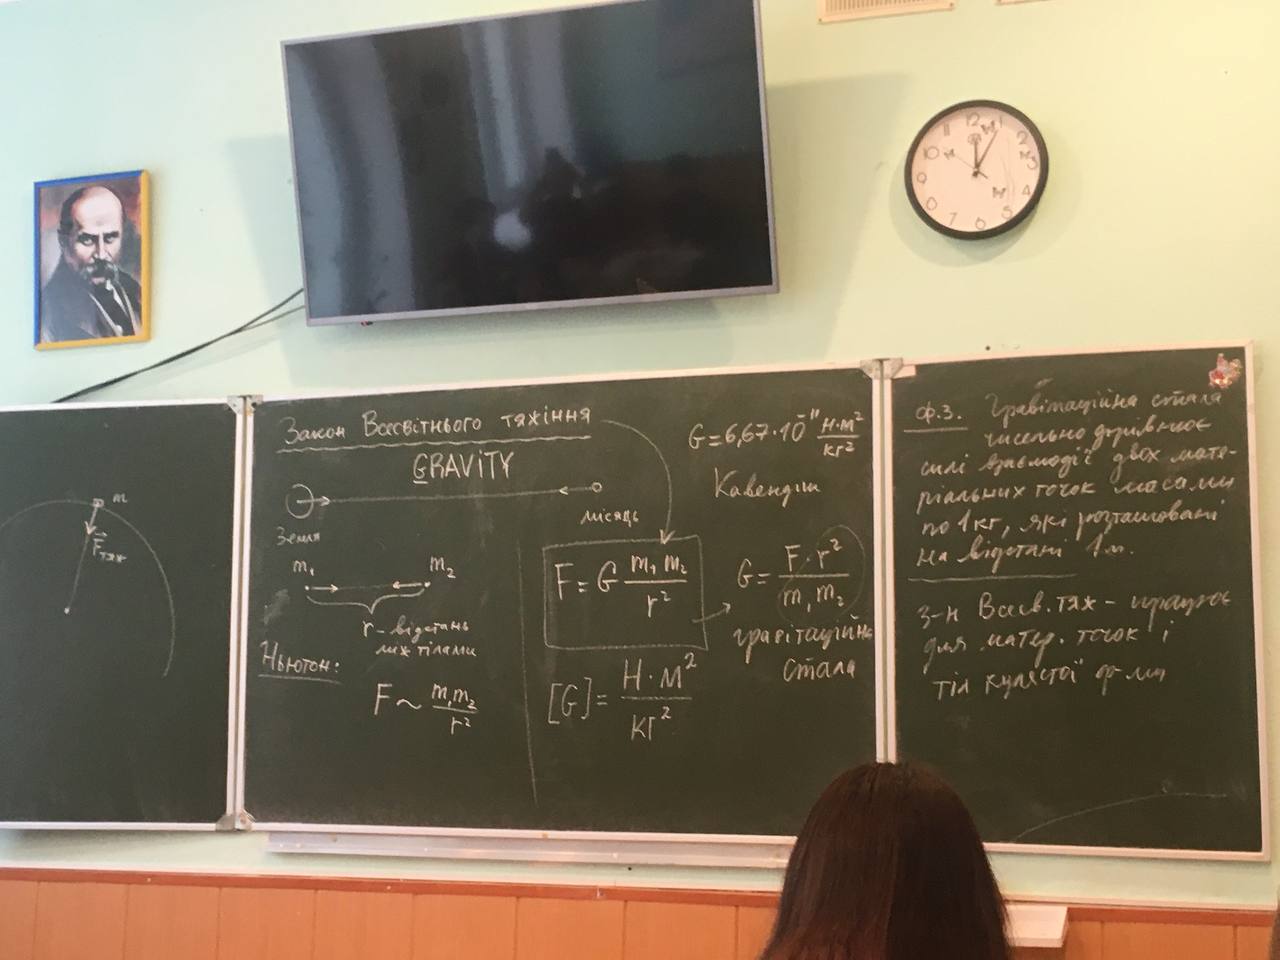 m
F⃗тяж
Закон Всесвітнього тяжіння
GRAVITY
Земля
місяць
m₁ m₂
r - відстань
між тілами
Ньютон:
F ~ m₁m₂/r²
G = 6,67·10⁻¹¹ Н·м²/кг²
Кавендіш
F = G m₁ m₂/r²
G = F·r²/m₁ m₂
гравітаційна
стала
[G] = Н·м²/кг²
ф.з. Гравітаційна стала
чисельно дорівнює
силі взаємодії двох мате-
ріальних точок масами
по 1 кг, які розташовані
на відстані 1 м.
З-н Всесв. тяж - працює
для матер. точок і
тіл кулястої ф-ми
11 12 1
10 2
9 3
8 4
7 6 5